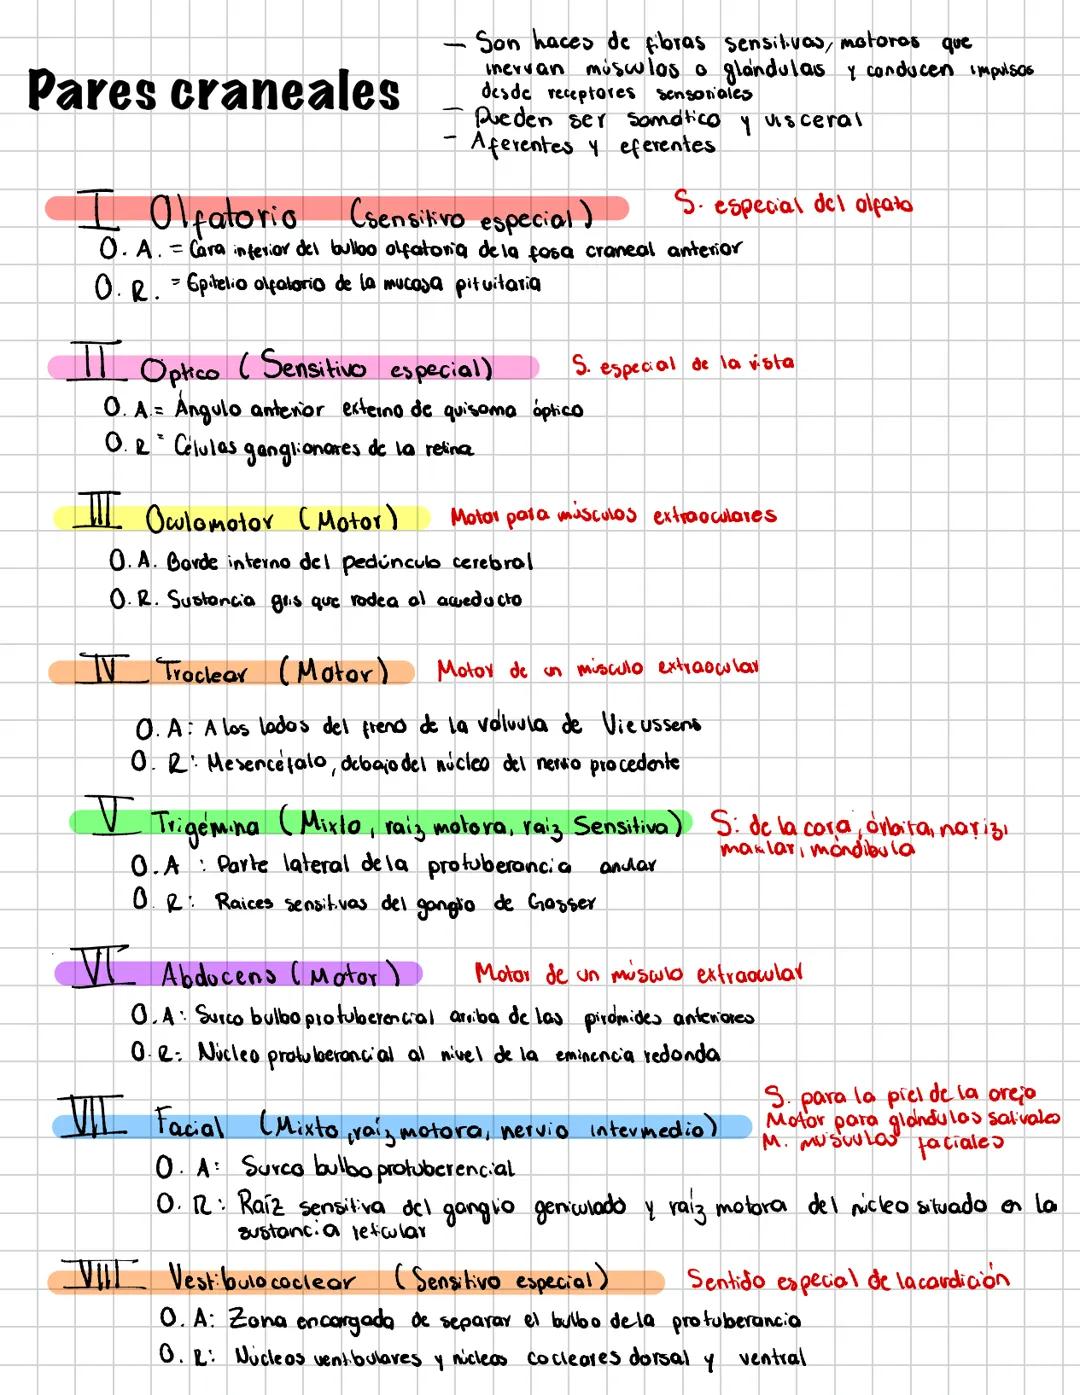 Pares craneales
— Son haces de fibras sensitivas, motoras que
inervan músculos o glándulas y conducen impulsos
desde receptores sensoriales
— Pueden ser somático y visceral
— Aferentes y eferentes
I Olfatorio (sensitivo especial) S. especial del olfato
O. A. = Cara inferior del bulbo olfatoria de la fosa craneal anterior
O. R. = Epitelio olfatorio de la mucosa pituitaria
II Óptico (Sensitivo especial) S. especial de la vista
O. A = Ángulo anterior externo de quisoma óptico
O. R = Células ganglionares de la retina
III Oculomotor (Motor) Motor para músculos extraoculares
O. A. Borde interno del pedúnculo cerebral
O. R. Sustancia gris que rodea al acueducto
IV Troclear (Motor) Motor de un músculo extraocular
O. A: A los lados del freno de la válvula de Vieussens
O. R: Mesencéfalo, debajo del núcleo del nervio procedente
V Trigémina (Mixto, raíz motora, raíz Sensitiva) S: de la cara, órbita, nariz,
maxlar, mándibula
O. A : Parte lateral de la protuberancia anular
O. R: Raices sensitivas del ganglio de Gasser
VI Abducens (Motor) Motor de un músculo extraocular
O. A: Surco bulbo protuberencial arriba de las pirámides anteriores
O. R: Núcleo protuberancial al nivel de la eminencia redonda
VII Facial (Mixto, raíz motora, nervio intermedio) S. para la piel de la oreja
Motor para glándulas salivales
M. músculos faciales
O. A: Surco bulbo protuberencial
O. R: Raíz sensitiva del ganglio geniculado y raíz motora del núcleo situado en la
sustancia reticular
VIII Vestibulococlear (Sensitivo especial) Sentido especial de la cardición
O. A: Zona encargada de separar el bulbo de la protuberancia
O. R: Nucleos ventibulares y núcleos cocleares dorsal y ventral